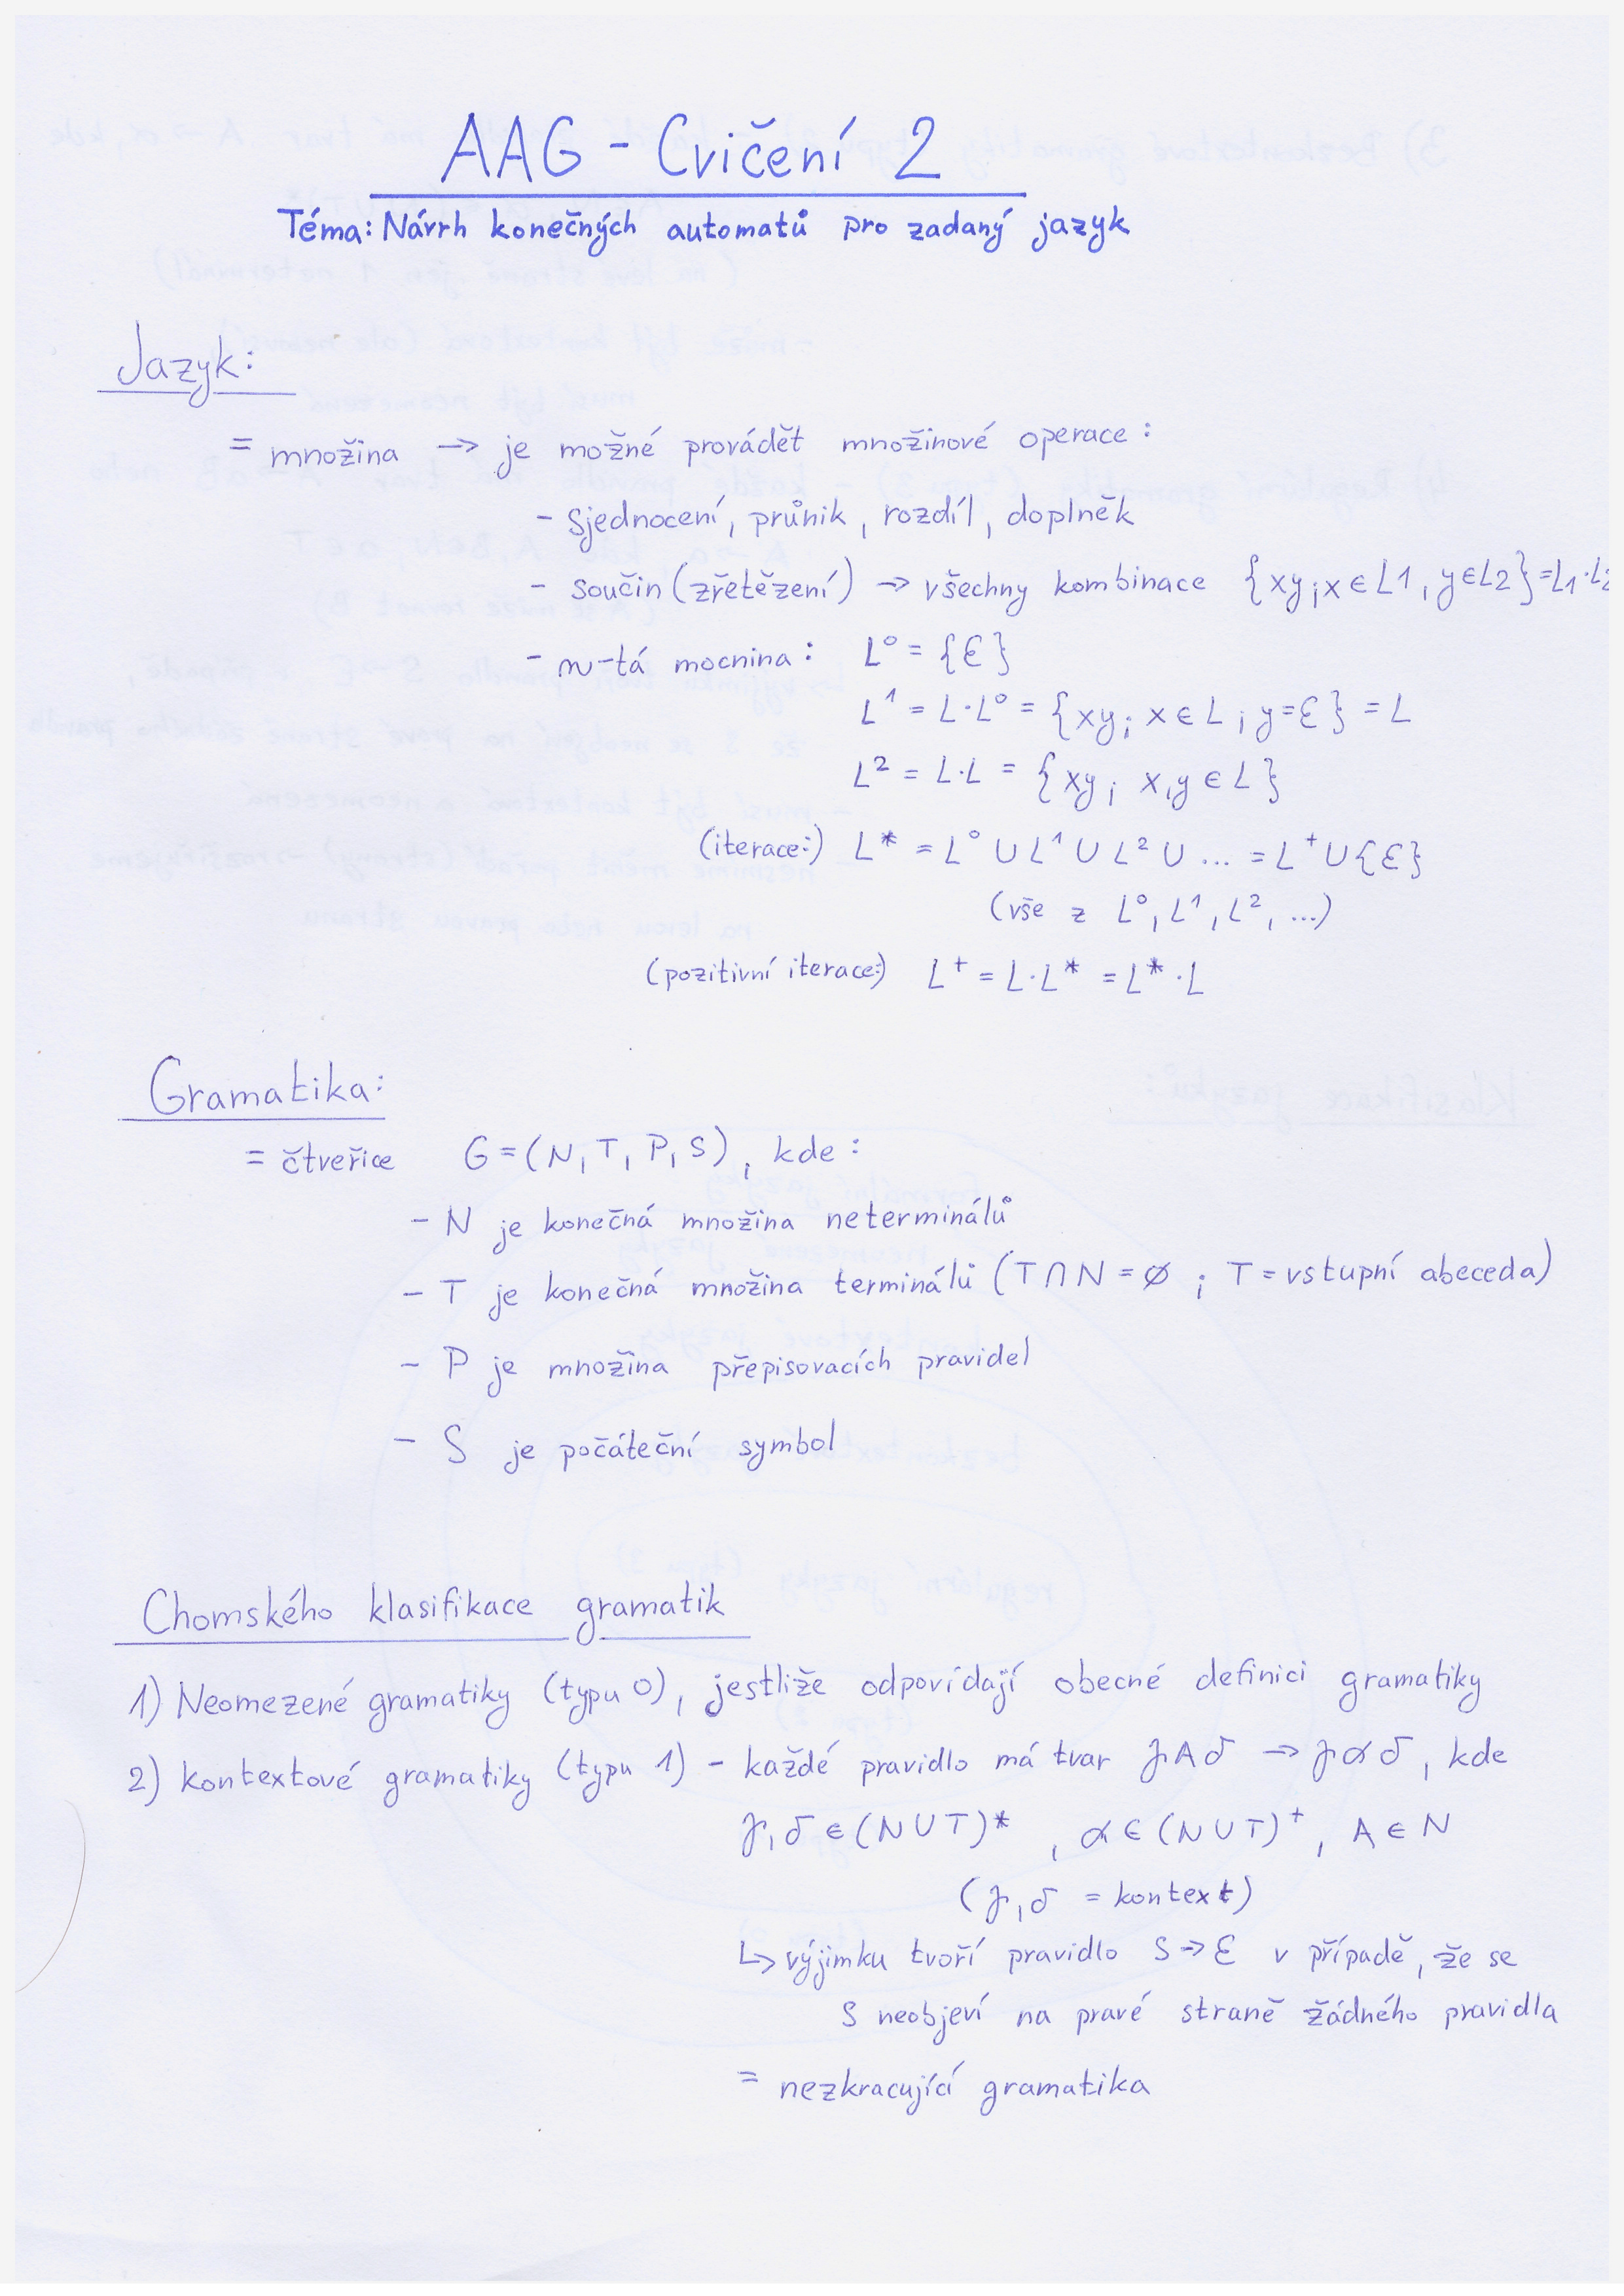 AAG - Cvičení 2
Téma: Návrh konečných automatů pro zadaný jazyk
Jazyk:
= množina → je možné provádět množinové operace:
- sjednocení, průnik, rozdíl, doplněk
- součin (zřetězení) → všechny kombinace {xy; x ∈ L1, y ∈ L2} = L1·L2
- n-tá mocnina: L⁰ = {ε}
L¹ = L·L⁰ = {xy; x ∈ L; y=ε} = L
L² = L·L = {xy; x,y ∈ L}
(iterace:) L* = L⁰ ∪ L¹ ∪ L² ∪ ... = L⁺ ∪ {ε}
(vše z L⁰, L¹, L², ...)
(pozitivní iterace:) L⁺ = L·L* = L*·L
Gramatika:
= čtveřice G = (N, T, P, S), kde:
- N je konečná množina neterminálů
- T je konečná množina terminálů (T ∩ N = ∅ ; T = vstupní abeceda)
- P je množina přepisovacích pravidel
- S je počáteční symbol
Chomského klasifikace gramatik
1) Neomezené gramatiky (typu 0), jestliže odpovídají obecné definici gramatiky
2) kontextové gramatiky (typu 1) - každé pravidlo má tvar γAδ → γαδ, kde
γ,δ ∈ (N ∪ T)*, α ∈ (N ∪ T)⁺, A ∈ N
(γ,δ = kontext)
↳ výjimku tvoří pravidlo S → ε v případě, že se
S neobjeví na pravé straně žádného pravidla
= nezkracující gramatika